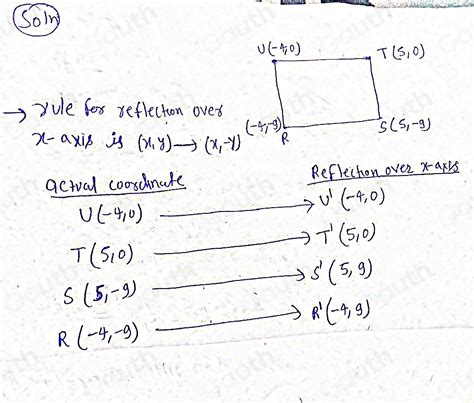 Soln
U(-4,0)
T(5,0)
→ rule for reflection over
x-axis is (x,y) → (x,-y)
(-4,-9)
R
S(5,-9)
actual coordinate
Reflection over x-axis
U(-4,0) → U'(-4,0)
T(5,0) → T'(5,0)
S(5,-9) → S'(5,9)
R(-4,-9) → R'(-4,9)